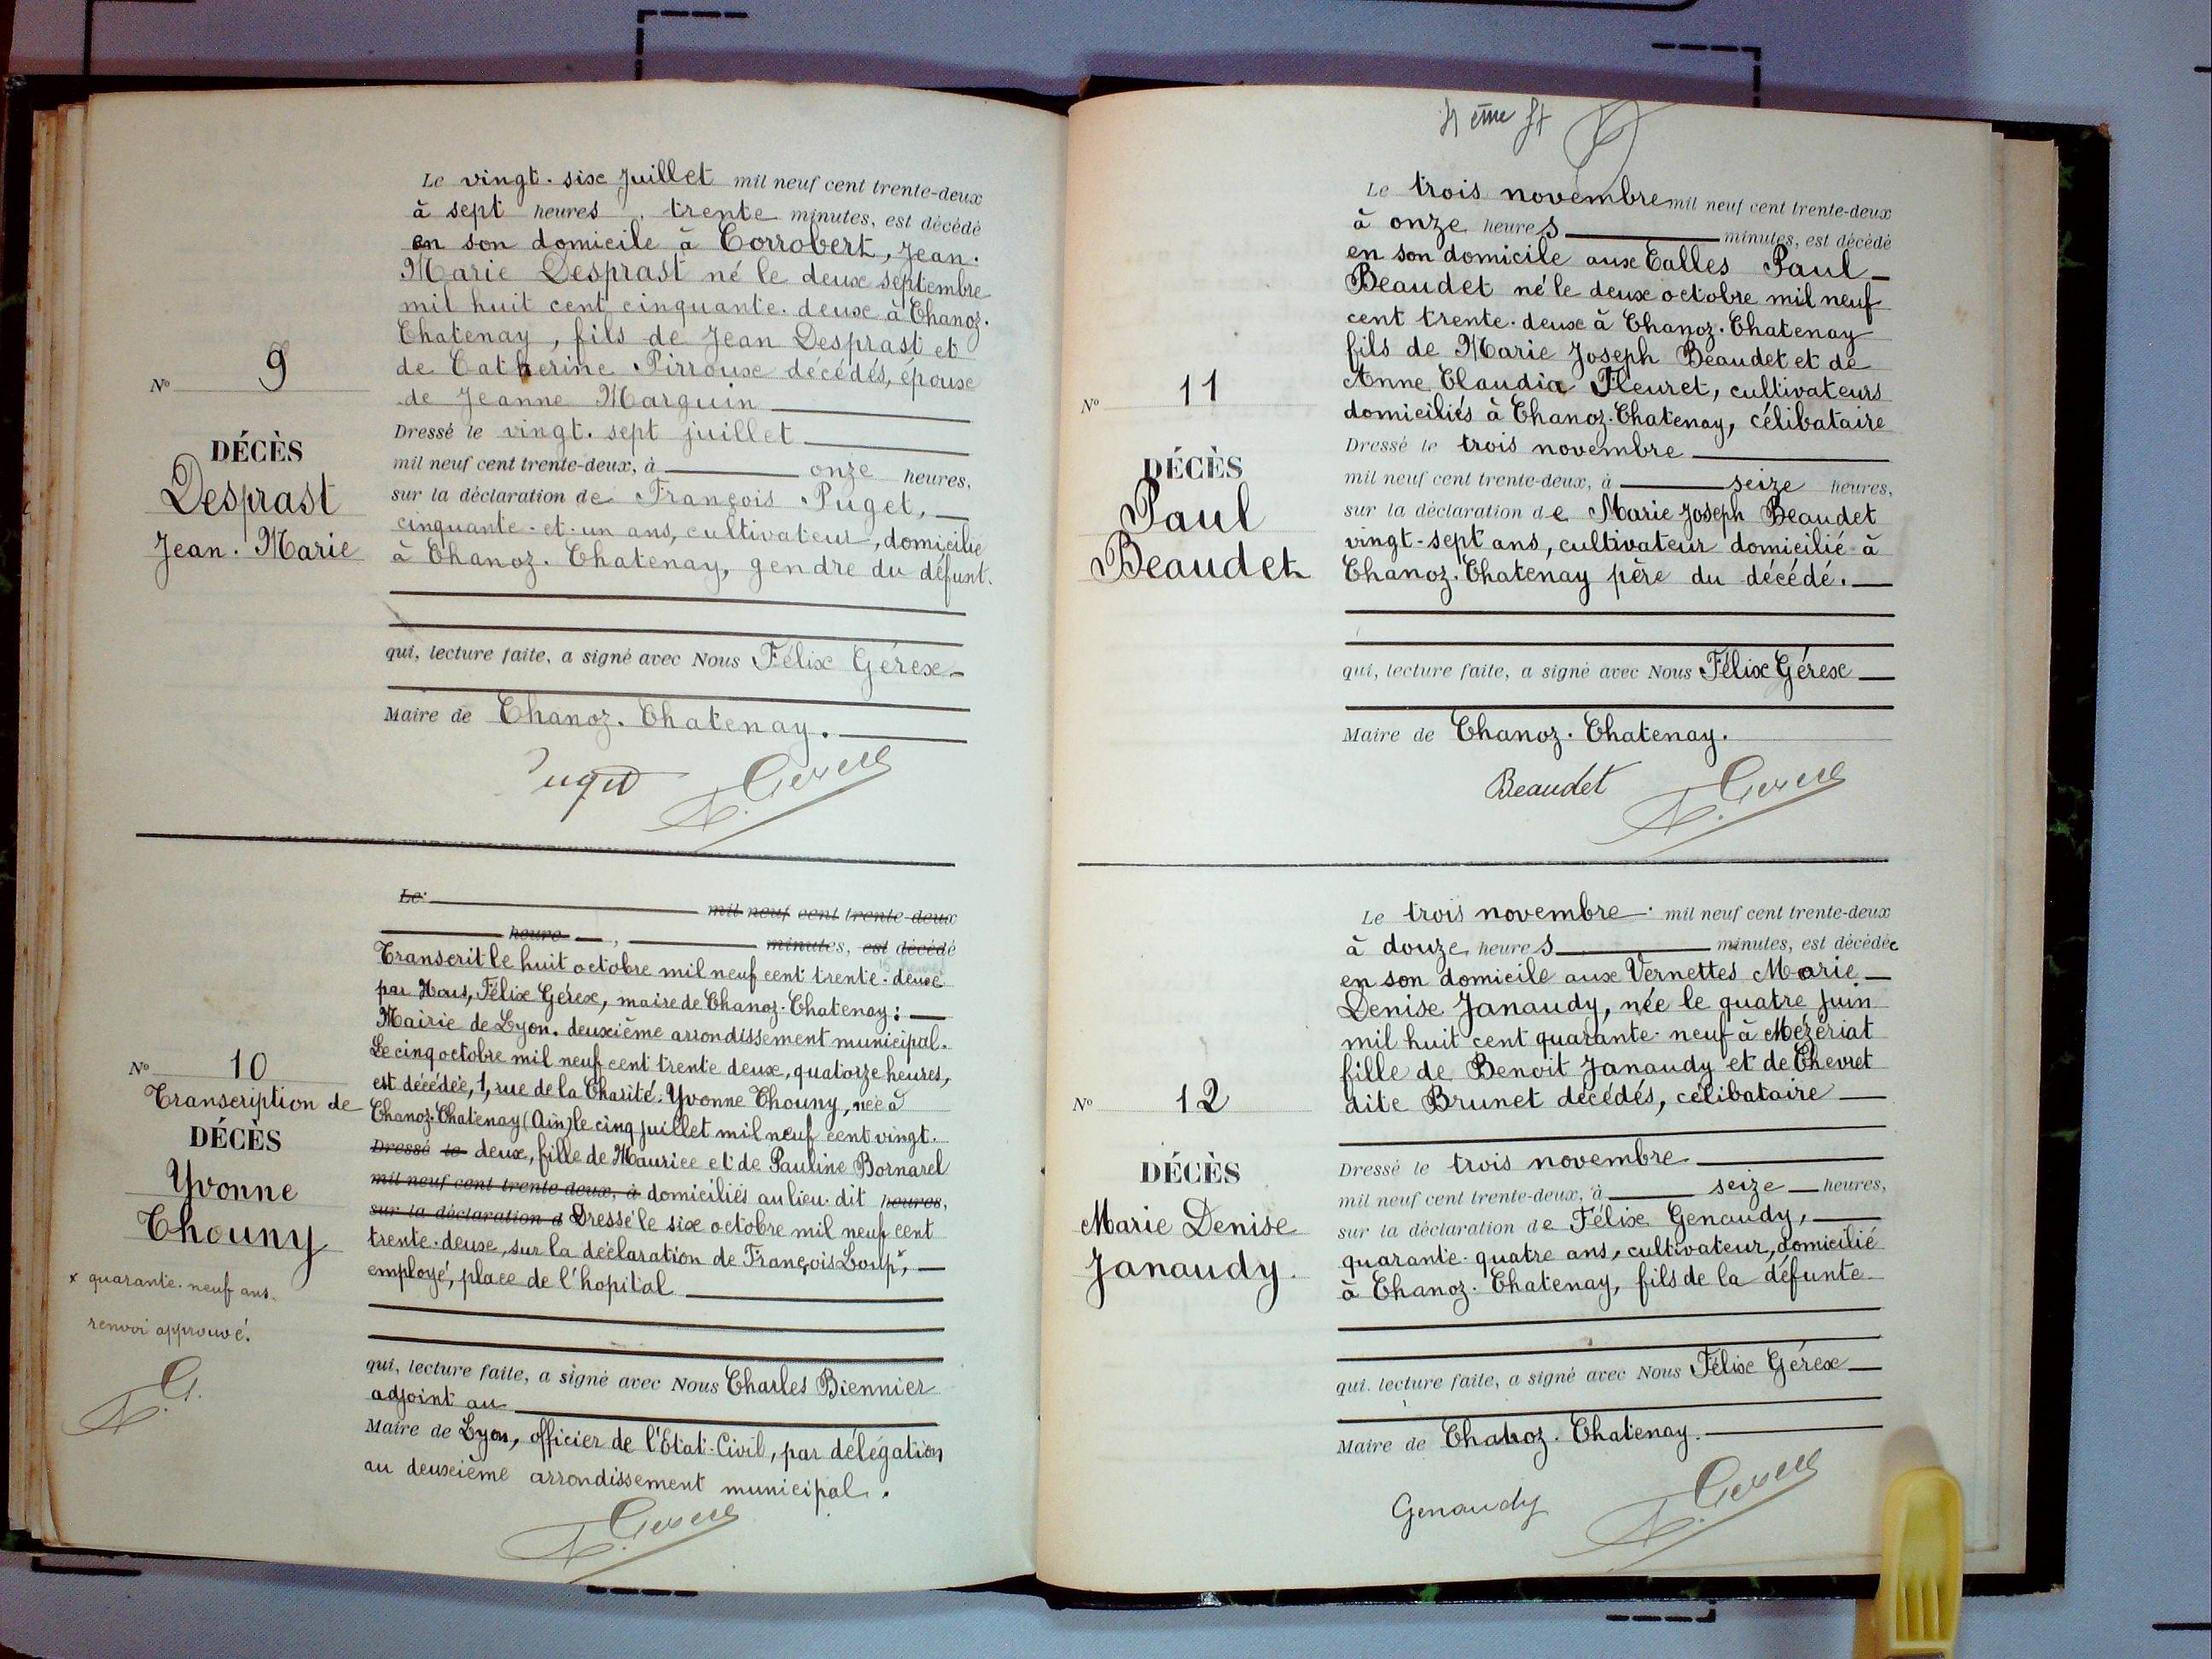 Le vingt-six Juillet mil neuf cent trente-deux
à sept heures, trente minutes, est décédé
en son domicile à Corrobert, Jean-
Marie Desprast né le deux septembre
mil huit cent cinquante-deux à Chanoz-
Chatenay, fils de Jean Desprast et
de Catherine Pirroux décédés, époux
de Jeanne Marguin
Dressé le vingt-sept juillet
mil neuf cent trente-deux, à onze heures,
sur la déclaration de François Puget,
cinquante-et-un ans, cultivateur, domicilié
à Chanoz-Chatenay, gendre du défunt.
N° 9
DÉCÈS
Desprast
Jean-Marie
qui, lecture faite, a signé avec Nous Félix Gérex
Maire de Chanoz-Chatenay.
Puget
Le mil neuf cent trente-deux
heure , minutes, est décédé
Transcrit le huit octobre mil neuf cent trente-deux
par Nous, Félix Gérex, maire de Chanoz-Chatenay :
Mairie de Lyon. deuxième arrondissement municipal.
Le cinq octobre mil neuf cent trente deux, quatorze heures,
est décédée, 1, rue de la Charité. Yvonne Chouny, née à
Chanoz-Chatenay (Ain) le cinq juillet mil neuf cent vingt-
Dressé le deux, fille de Maurice et de Pauline Bornarel
mil neuf cent trente-deux, à domiciliés au lieu-dit heures,
sur la déclaration d Dressé le six octobre mil neuf cent
trente-deux, sur la déclaration de François Loup, x
employé, place de l'hopital
N° 10
Transcription de
DÉCÈS
Yvonne
Chouny
x quarante-neuf ans.
renvoi approuvé.
qui, lecture faite, a signé avec Nous Charles Biennier
adjoint au
Maire de Lyon, officier de l'Etat-Civil, par délégation
au deuxième arrondissement municipal.
Le trois novembre mil neuf cent trente-deux
à onze heures minutes, est décédé
en son domicile aux Calles Paul
Beaudet né le deux octobre mil neuf
cent trente-deux à Chanoz-Chatenay
fils de Marie Joseph Beaudet et de
Anne Claudia Fleuret, cultivateurs
domiciliés à Chanoz-Chatenay, célibataire
Dressé le trois novembre
mil neuf cent trente-deux, à seize heures,
sur la déclaration de Marie Joseph Beaudet
vingt-sept ans, cultivateur domicilié à
Chanoz-Chatenay père du décédé.
N° 11
DÉCÈS
Paul
Beaudet
qui, lecture faite, a signé avec Nous Félix Gérex
Maire de Chanoz-Chatenay.
Beaudet
Le trois novembre mil neuf cent trente-deux
à douze heures minutes, est décédée
en son domicile aux Vernettes Marie
Denise Janaudy, née le quatre Juin
mil huit cent quarante-neuf à Mézériat
fille de Benoit Janaudy et de Chevret
dite Brunet décédés, célibataire
Dressé le trois novembre
mil neuf cent trente-deux, à seize heures,
sur la déclaration de Félix Genaudy,
quarante-quatre ans, cultivateur, domicilié
à Chanoz-Chatenay, fils de la défunte
N° 12
DÉCÈS
Marie Denise
Janaudy.
qui, lecture faite, a signé avec Nous Félix Gérex
Maire de Chanoz-Chatenay.
Genaudy